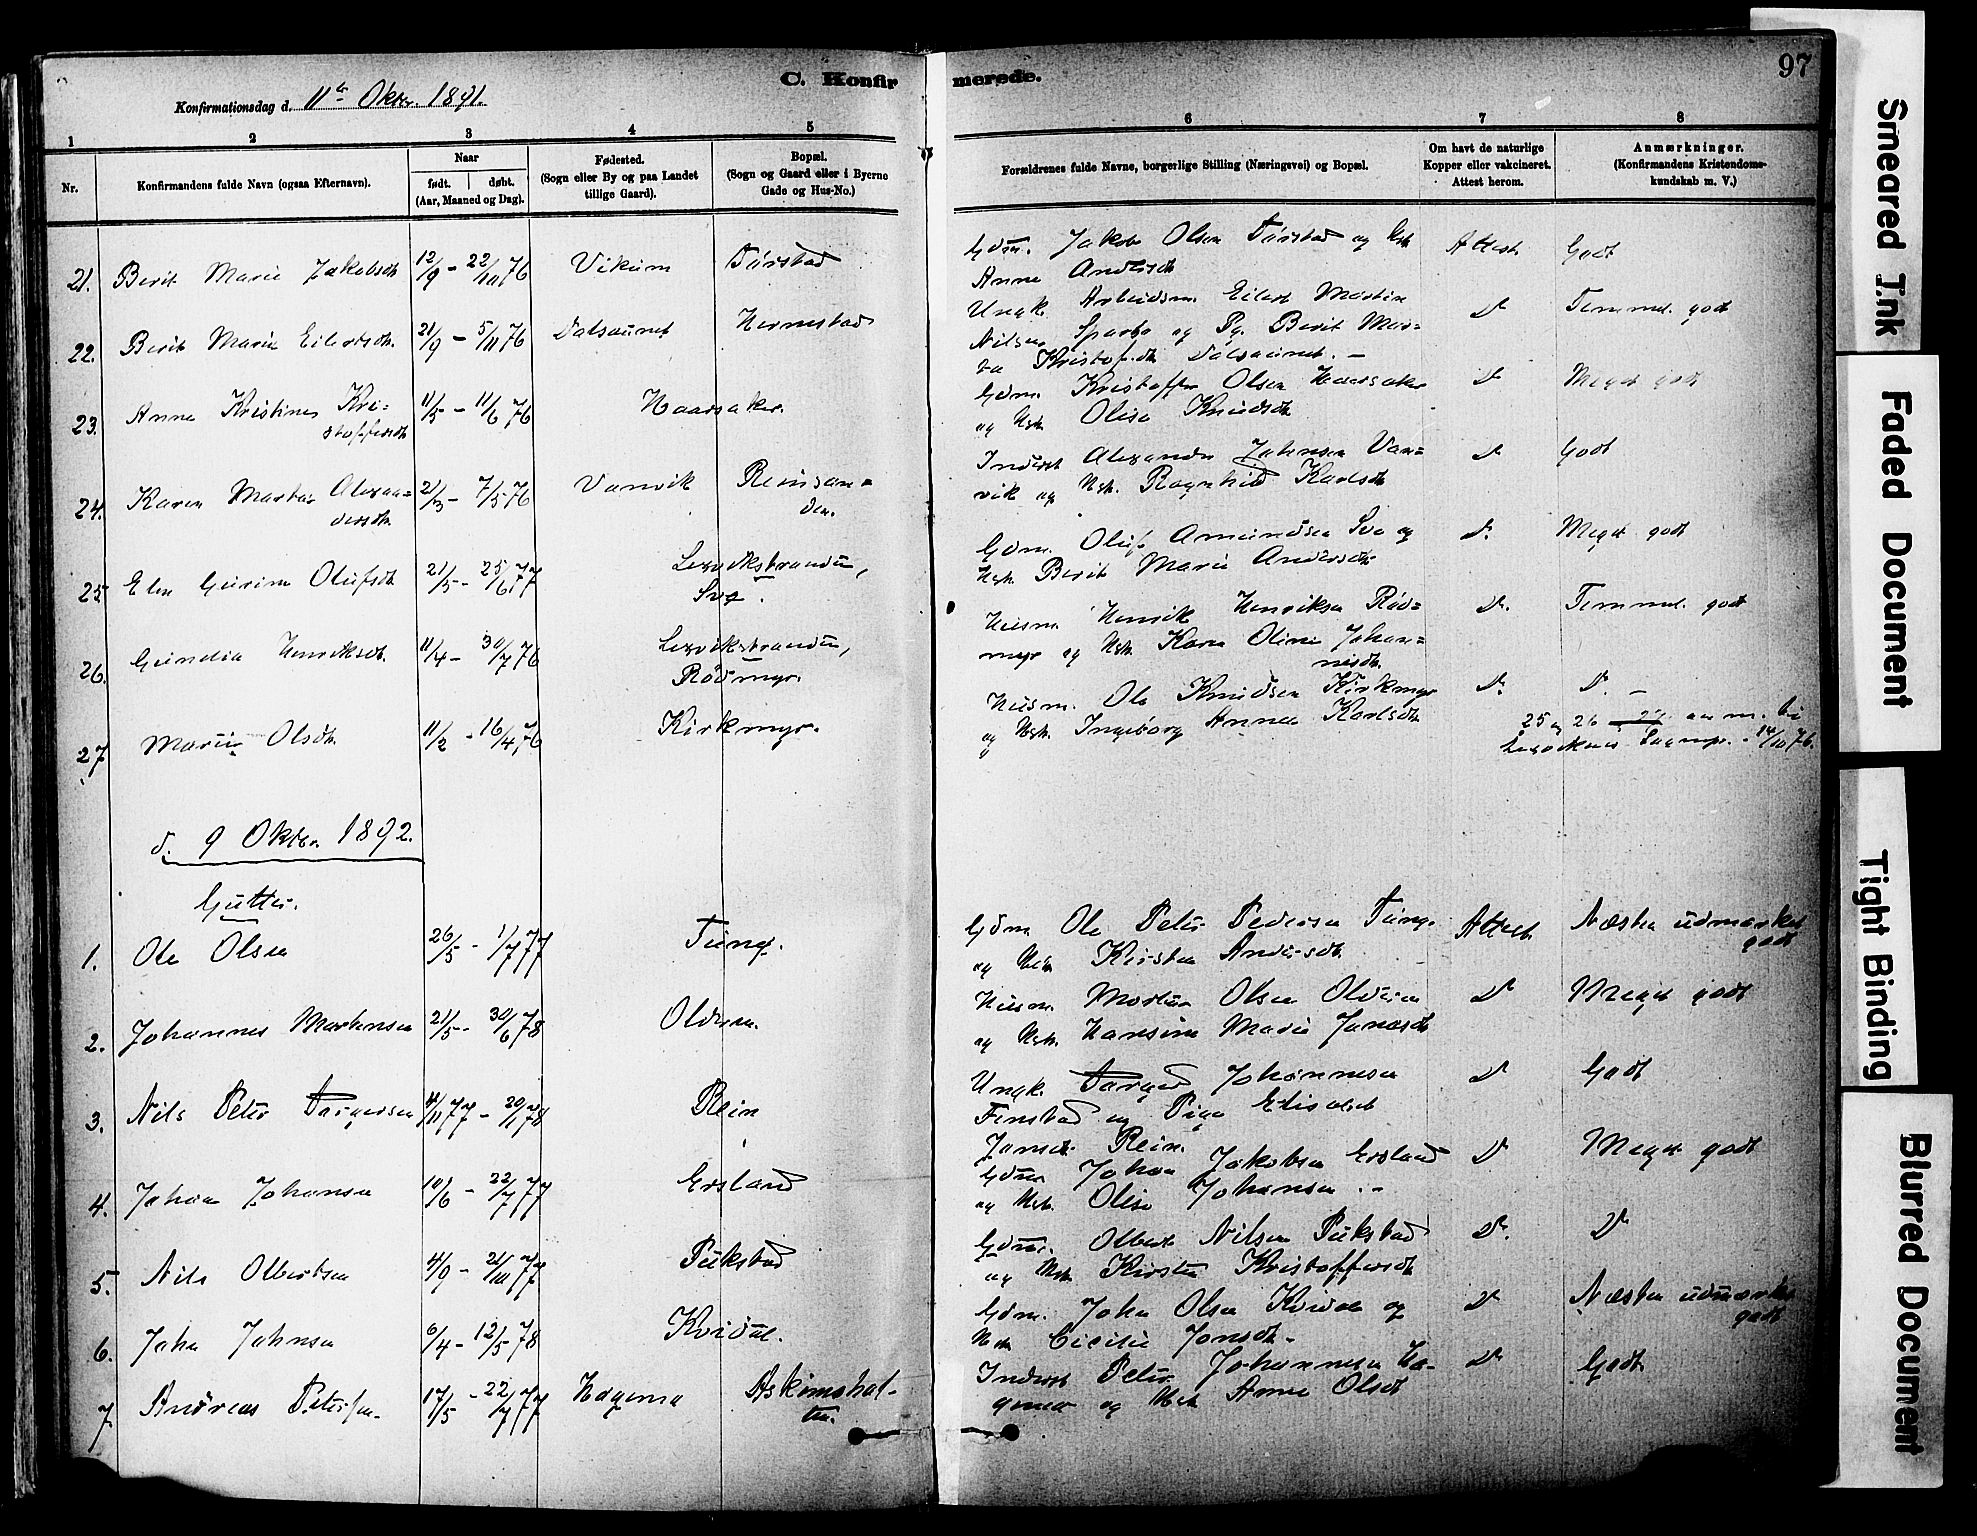 C. Konfirmerede.
97
Konfirmationsdag d. 11te Oktr. 1891.
1 2 3 4 5 6 7 8
Nr.
Konfirmandens fulde Navn (ogsaa Efternavn).
Naar
født. døbt.
(Aar, Maaned og Dag).
Fødested.
(Sogn eller By og paa Landet
tillige Gaard).
Bopæl.
(Sogn og Gaard eller i Byerne
Gade og Hus-No.)
Forældrenes fulde Navne, borgerlige Stilling (Næringsvei) og Bopæl.
Om havt de naturlige
Kopper eller vakcineret.
Attest herom.
Anmærkninger.
(Konfirmandens Kristendoms-
kundskab m. V.)
21. Berit Marie Jakobsdt. 12/9 - 22/10 76 Vikum Tørstad
Gdm. Jakob Olsen Tørstad og Hst. Attest Godt
Anne Andersdt.
22. Berit Marie Eilertsdt. 21/9 - 5/11 76 Dalsaunet Hermstad
Ungk. Arbeidsm. Eilert Martin Do Temmel. godt
Nilsen Sparbo og Pg. Berit Mar=
ta Kristofdt. Dalsaunet. -
23. Anne Kristine Kri= 11/5 - 11/6 76 Haarsaker.
stoffersdt.
Gdm. Kristoffer Olsen Haarsaker Do Meget godt
og Hst. Olise Knudsdt.
24. Karen Marta Alexan= 21/3 - 7/5 76 Vanvik Reinsan=
dersdt. den.
Inderst Alexander Johnsen Van= Do Godt
vik og Hst. Ragnhild Karlsdt.
25. Elen Gurine Olufsdt 21/5 - 25/6 77 Lexviksstranden,
Sve.
Gdm. Oluf Amundsen Sve og Do. Meget godt
Hst. Berit Marie Andersdt.
26. Gundia Henriksdt. 11/4 - 30/7 76 Lexviksstranden,
Rødmyr.
Husm. Henrik Henriksen Rød= Do. Temmel. godt
myr og Hst. Karen Oline Johan=
nesdt.
27 Marie Olsdt. 11/2 - 16/4 76 Kirkmyr.
Husm. Ole Knudsen Kirkmyr Do. Do. -
og Hst. Ingeborg Anna Karlsdt.
25 og 26
d. 9 Oktbr. 1892.
Gutter.
1. Ole Olsen 26/5 - 1/7 77 Tung.
Gdm Ole Peter Pedersen Tung. Attest Næsten udmærket
og Hst. Kirsten Andersdt. godt
2. Johannes Martensen 21/5 - 30/6 78 Olderen.
Husm. Morten Olsen Olderen Do Meget godt
og Hst. Hansine Marie Jonasdt
3. Nils Peter Torgersen 4/11 77 - 20/1 78 Rein
Ungk. Torger Johannesen Do Godt
Fenstad og Pige Elisabet
Jonsdt. Rein.
4. Johan Johansen 10/6 - 22/7 77 Ersland
Gdm. Johan Jakobsen Ersland Do Meget godt
og Hst. Olise Johansen. -
5. Nils Olbertsen 4/9 - 21/10 77 Pukstad
Gdm. Olbert Nilsen Pukstad Do. Do
og Hst. Kirsten Kristoffersdt
6. John Johnsen 6/4 - 12/5 78 Kvidal.
Gdm. John Olsen Kvidal og Do Næsten udmærket
Hst. Cicilie Jonsdt. godt
7. Andreas Petersen 17/5 - 22/7 77 Hagema Askimshal-
ten.
Inderst Peter Johannesen Ha- Do Godt.
og Hst. Anne Olsdt
Smeared Ink
Faded Document
Tight Binding
Blurred Document